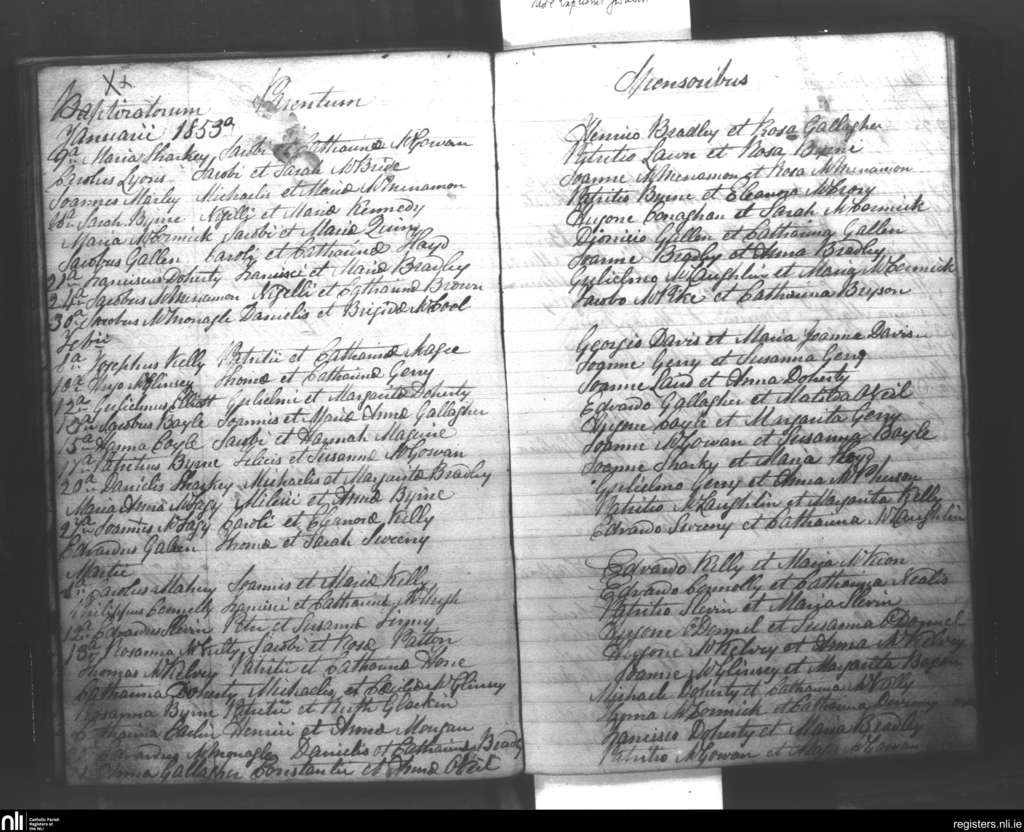 Baptizatorum Parentum
Januarii 1853
9a Maria Sharkey Jacobi et Catharinæ McGowan
Carolus Lyons Jacobi et Sarah McBride
Joannes Marley Michaelis et Mariæ McMenamon
Sarah Byrne Nigelli et Mariæ Kennedy
Maria McCormick Jacobi et Mariæ Quinn
Jacobus Gallen Caroli et Catharinæ Floyd
Franciscus Doherty Francisci et Mariæ Bradley
24a Jacobus McMenamon Nigelli et Catharinæ Brown
30a Jacobus McMonagle Danielis et Brigidæ McCool
Febrii
Josephus Kelly Patritii et Catharinæ Magee
Hugo McGlinsey Thomæ et Catharinæ Gerry
12a Gulielmus Elliott Gulielmi et Margarita Doherty
13a Jacobus Bayle Joannis et Mariæ Annæ Gallagher
15a Hanna Coyle Jacobi et Hannah Maguire
17a Patritius Byrne Felicis et Susannæ McGowan
20a Danielis Sharkey Michaelis et Margarita Bradley
Maria Anna Milesii et Annæ Byrne
27a Joannes Caroli et Eleanoræ Kelly
Edvardus Gallen Thomæ et Sarah Sweeny
Martii
Carolus Mahey Joannis et Mariæ Kelly
Philippus Connelly Francisci et Catharinæ McHugh
12a Edvardus Slevin Petri et Susannæ
13a Rosanna Jacobi et Rosæ Patton
Thomas McKelvey Patritii et Catharinæ Hone
Catharina Doherty Michaelis et Ceciliæ McGlinsey
Rosanna Byrne Patritii et Ruth Glackin
Catharina Henrici et Annæ Morgan
Edvardus McMonagle Danielis et Catharinæ Bradly
Anna Gallagher Constantii et Annæ
Sponsoribus
Henrico Bradley et Rosa Gallagher
Patritio Lawn et Rosa Byrne
Joanne McMenamon et Rosa McMenamon
Patritio Byrne et Eleanora McCrory
Eugone Conaghan et Sarah McCormick
Dionicio Gallen et Catharina Gallen
Joanne Bradley et Anna Bradley
Gulielmo McLaughlin et Maria McCormick
Jacobo et Catharina Bryson
Georgio Davis et Maria Joanna Davis
Joanne Gerry et Susanna Gerry
Joanne Laird et Anna Doherty
Edvardo Gallagher et Matilda
Eugone Coyle et Margarita Gerry
Joanne McGowan et Susanna Bayle
Joanne Sharky et Maria Floyd
Gulielmo Gerry et Anna McPherson
Patritio McLaughlin et Margarita Kelly
Edvardo Sweeny et Catharina McLaughlin
Edvardo Kelly et Maria McKeon
Edvardo Connolly et Catharina Nealis
Patritio Slevin et Maria Slevin
Eugone O'Donnel et Susanna O'Donnel
Eugone McKelvey et Anna McKelvey
Joanne McGlinsey et Margarita
Michaele Doherty et Catharina
McCormick et Catharina Devenny
Francisco Doherty et Maria Bradley
Patritio McGowan et McGowan
nli
Catholic Parish
Registers at
the NLI
registers.nli.ie